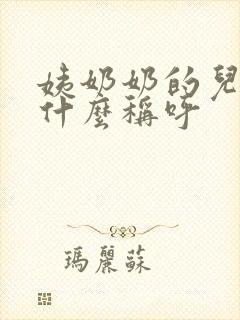 姨奶奶的兒
什麼稱呼
瑪麗蘇